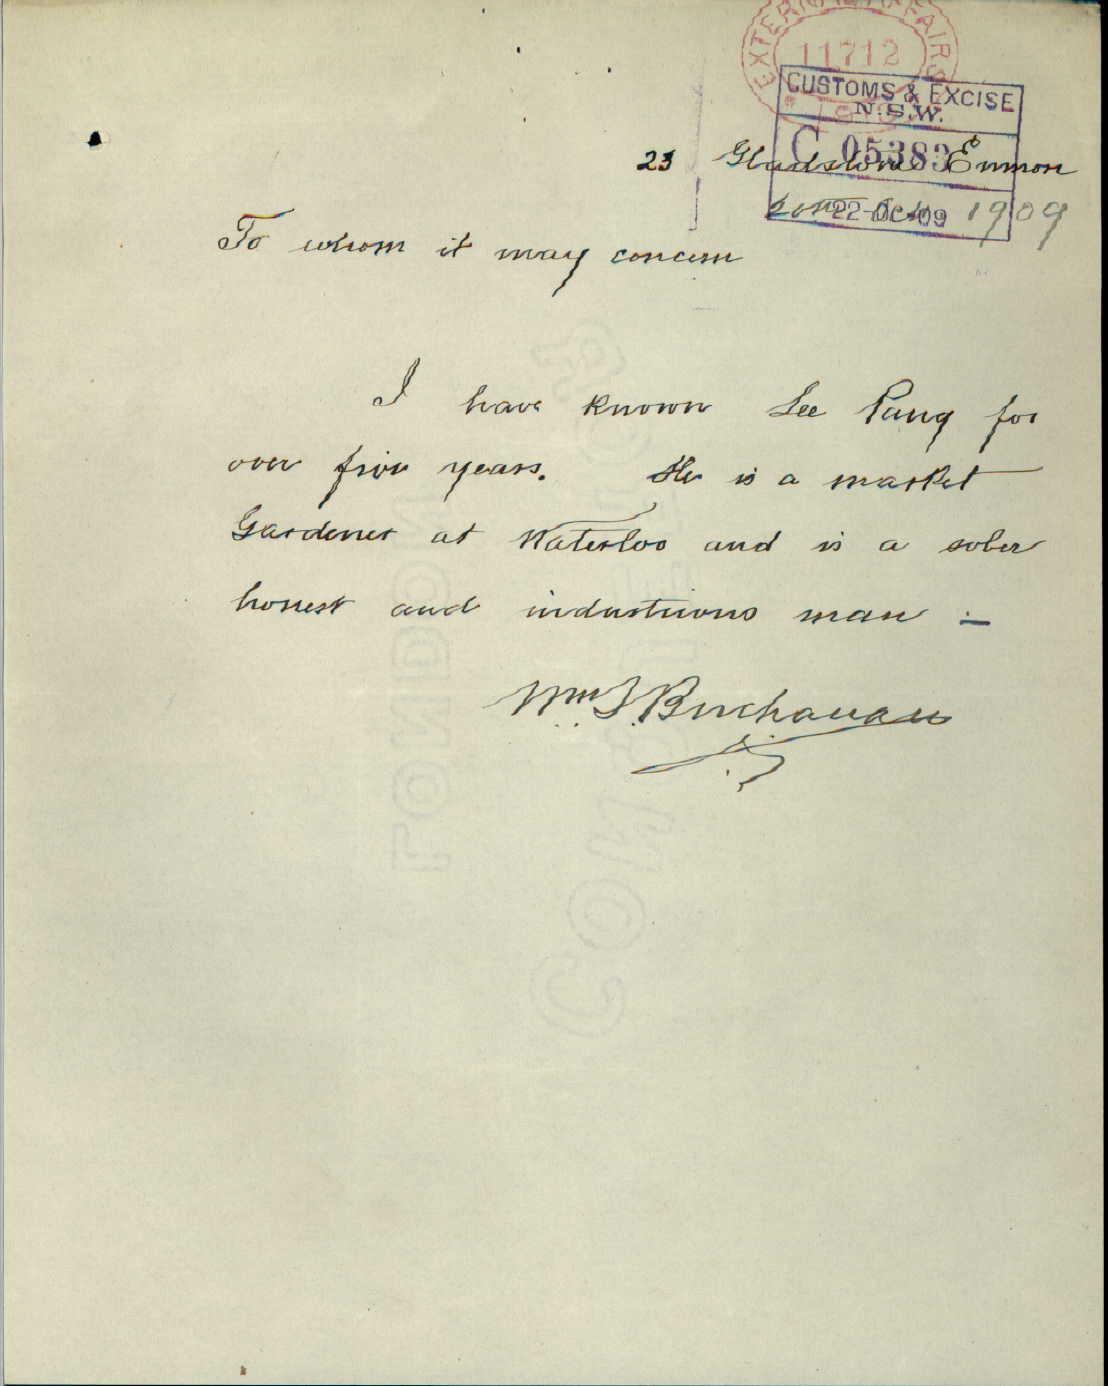 EXTERNAL AFFAIRS
11712
CUSTOMS & EXCISE
N.S.W.
C 05383
22 OC 09
23 Gladstone Enmore
1909
To whom it may concern
I have known Lee Pang for
over five years. He is a market
Gardener at Waterloo and is a sober
honest and industrious man -
Wm J Buchanan